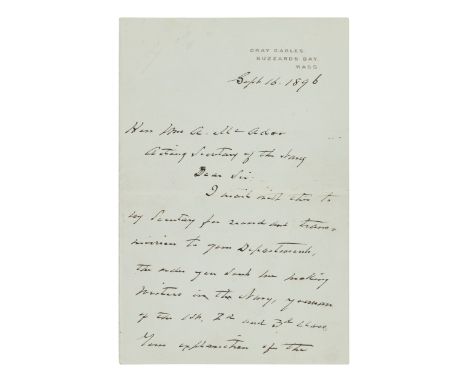 GRAY GABLES
BUZZARDS BAY
MASS
Sept 16. 1896
Hon Wm A. McAdoo
Acting Secretary of the Navy
Dear Sir.
I mail with this to
my Secretary for record and trans-
mission to your Department,
the order you sent me making
Writers in the Navy, yeomen
of the 1st, 2d and 3d class.
Your explanation of the